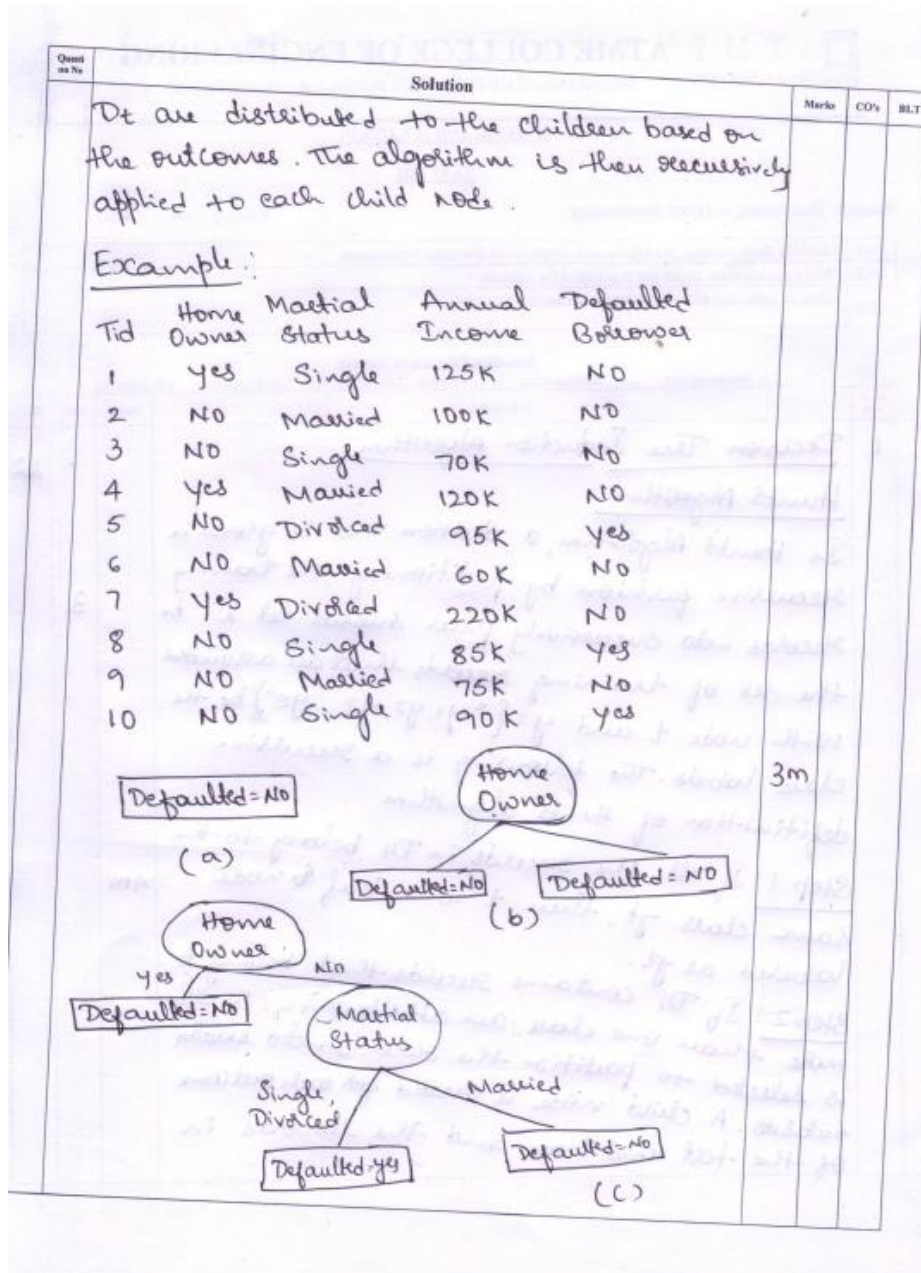 Questi
on No
Solution
Marks CO's BLT
Dt are distributed to the children based on
the outcomes. The algorithm is then recursively
applied to each child node.
Example:
Tid Home Owner Martial Status Annual Income Defaulted Borrower
1 Yes Single 125K NO
2 NO Married 100K NO
3 NO Single 70K NO
4 Yes Married 120K NO
5 NO Divorced 95K Yes
6 NO Married 60K NO
7 Yes Divorced 220K NO
8 NO Single 85K Yes
9 NO Married 75K NO
10 NO Single 90K Yes
3m
Defaulted=No
(a)
Home
Owner
Defaulted=No Defaulted=NO
(b)
Home
Owner
Yes No
Defaulted=No
Martial
Status
Single,
Divorced
Married
Defaulted=yes
Defaulted=No
(C)